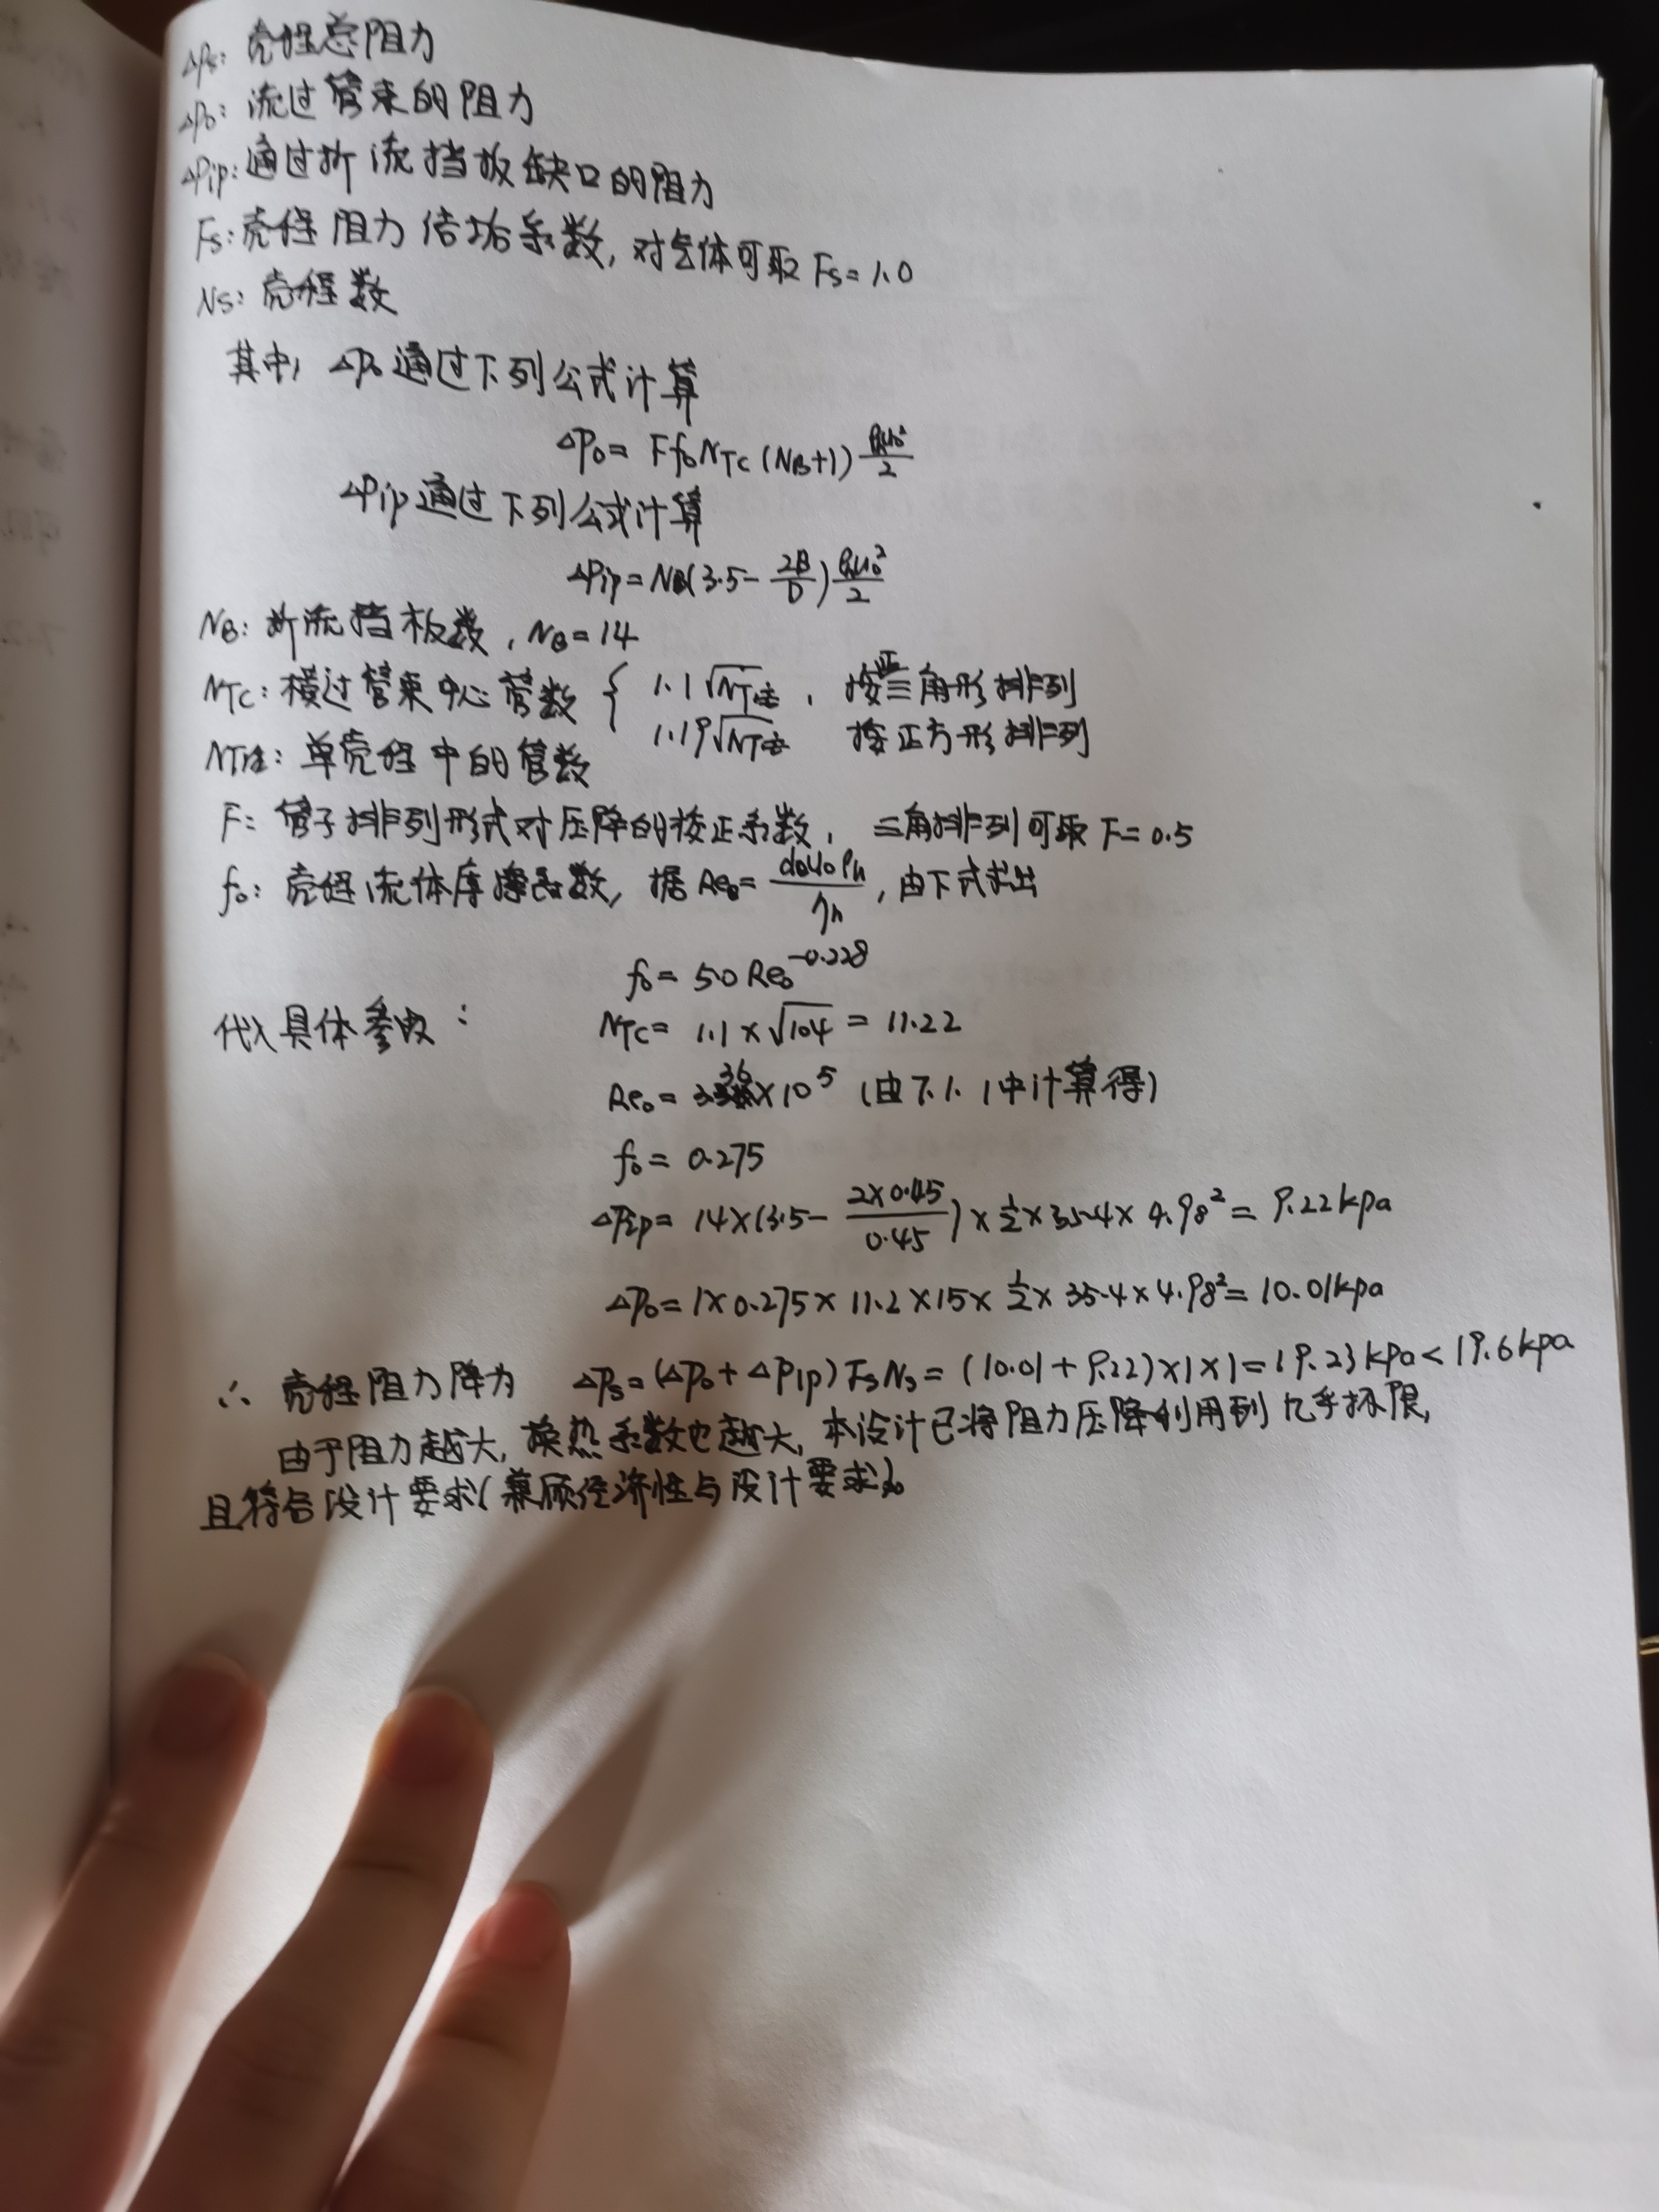 ΔPs: 壳程总阻力
ΔPo: 流过管束的阻力
ΔPip: 通过折流挡板缺口的阻力
Fs: 壳程阻力结垢系数, 对气体可取 Fs=1.0
Ns: 壳程数
其中, ΔPo 通过下列公式计算
ΔPo = FfoNTC(NB+1) ρhuo²/2
ΔPip 通过下列公式计算
ΔPip = NB(3.5 - 2B/D) ρhuo²/2
NB: 折流挡板数, NB=14
NTC: 横过管束中心管数 { 1.1√NT壳, 按正三角形排列
1.19√NT壳 按正方形排列
NT壳: 单壳程中的管数
F: 管子排列形式对压降的校正系数, 三角排列可取 F=0.5
fo: 壳程流体摩擦系数, 据 Reo = douoρh/ηh, 由下式求出
fo = 5.0 Reo^-0.228
代入具体参数: NTC = 1.1×√104 = 11.22
Reo = 3.36×10⁵ (由7.1.1中计算得)
fo = 0.275
ΔPip = 14×(3.5 - 2×0.45/0.45)×1/2×35.4×4.98² = 9.22kpa
ΔPo = 1×0.275×11.2×15×1/2×35.4×4.98² = 10.01kpa
∴ 壳程阻力降为 ΔPs=(ΔPo+ΔPip)FsNs = (10.01+9.22)×1×1=19.23kpa<19.6kpa
由于阻力越大, 换热系数也越大, 本设计已将阻力压降利用到几乎极限,
且符合设计要求(兼顾经济性与设计要求)。